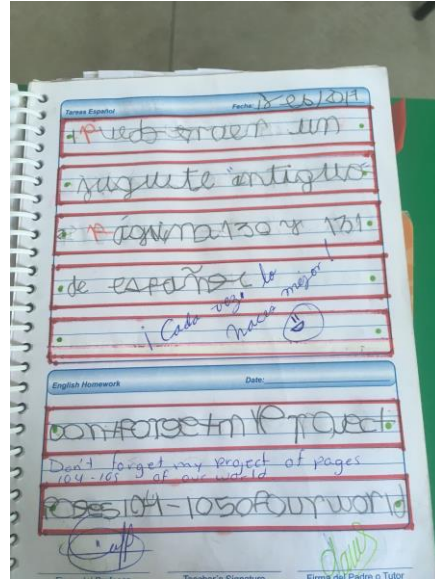 Tareas Español Fecha:
Puedo traer un
juguete antiguo
Página 130 y 131
de español
¡Cada vez lo
haces mejor!
English Homework Date:
Dont Forget my Project
Don't forget my project of pages
104-105 of our world
Pages 104-105 of our world
Teacher's Signature Firma del Padre o Tutor